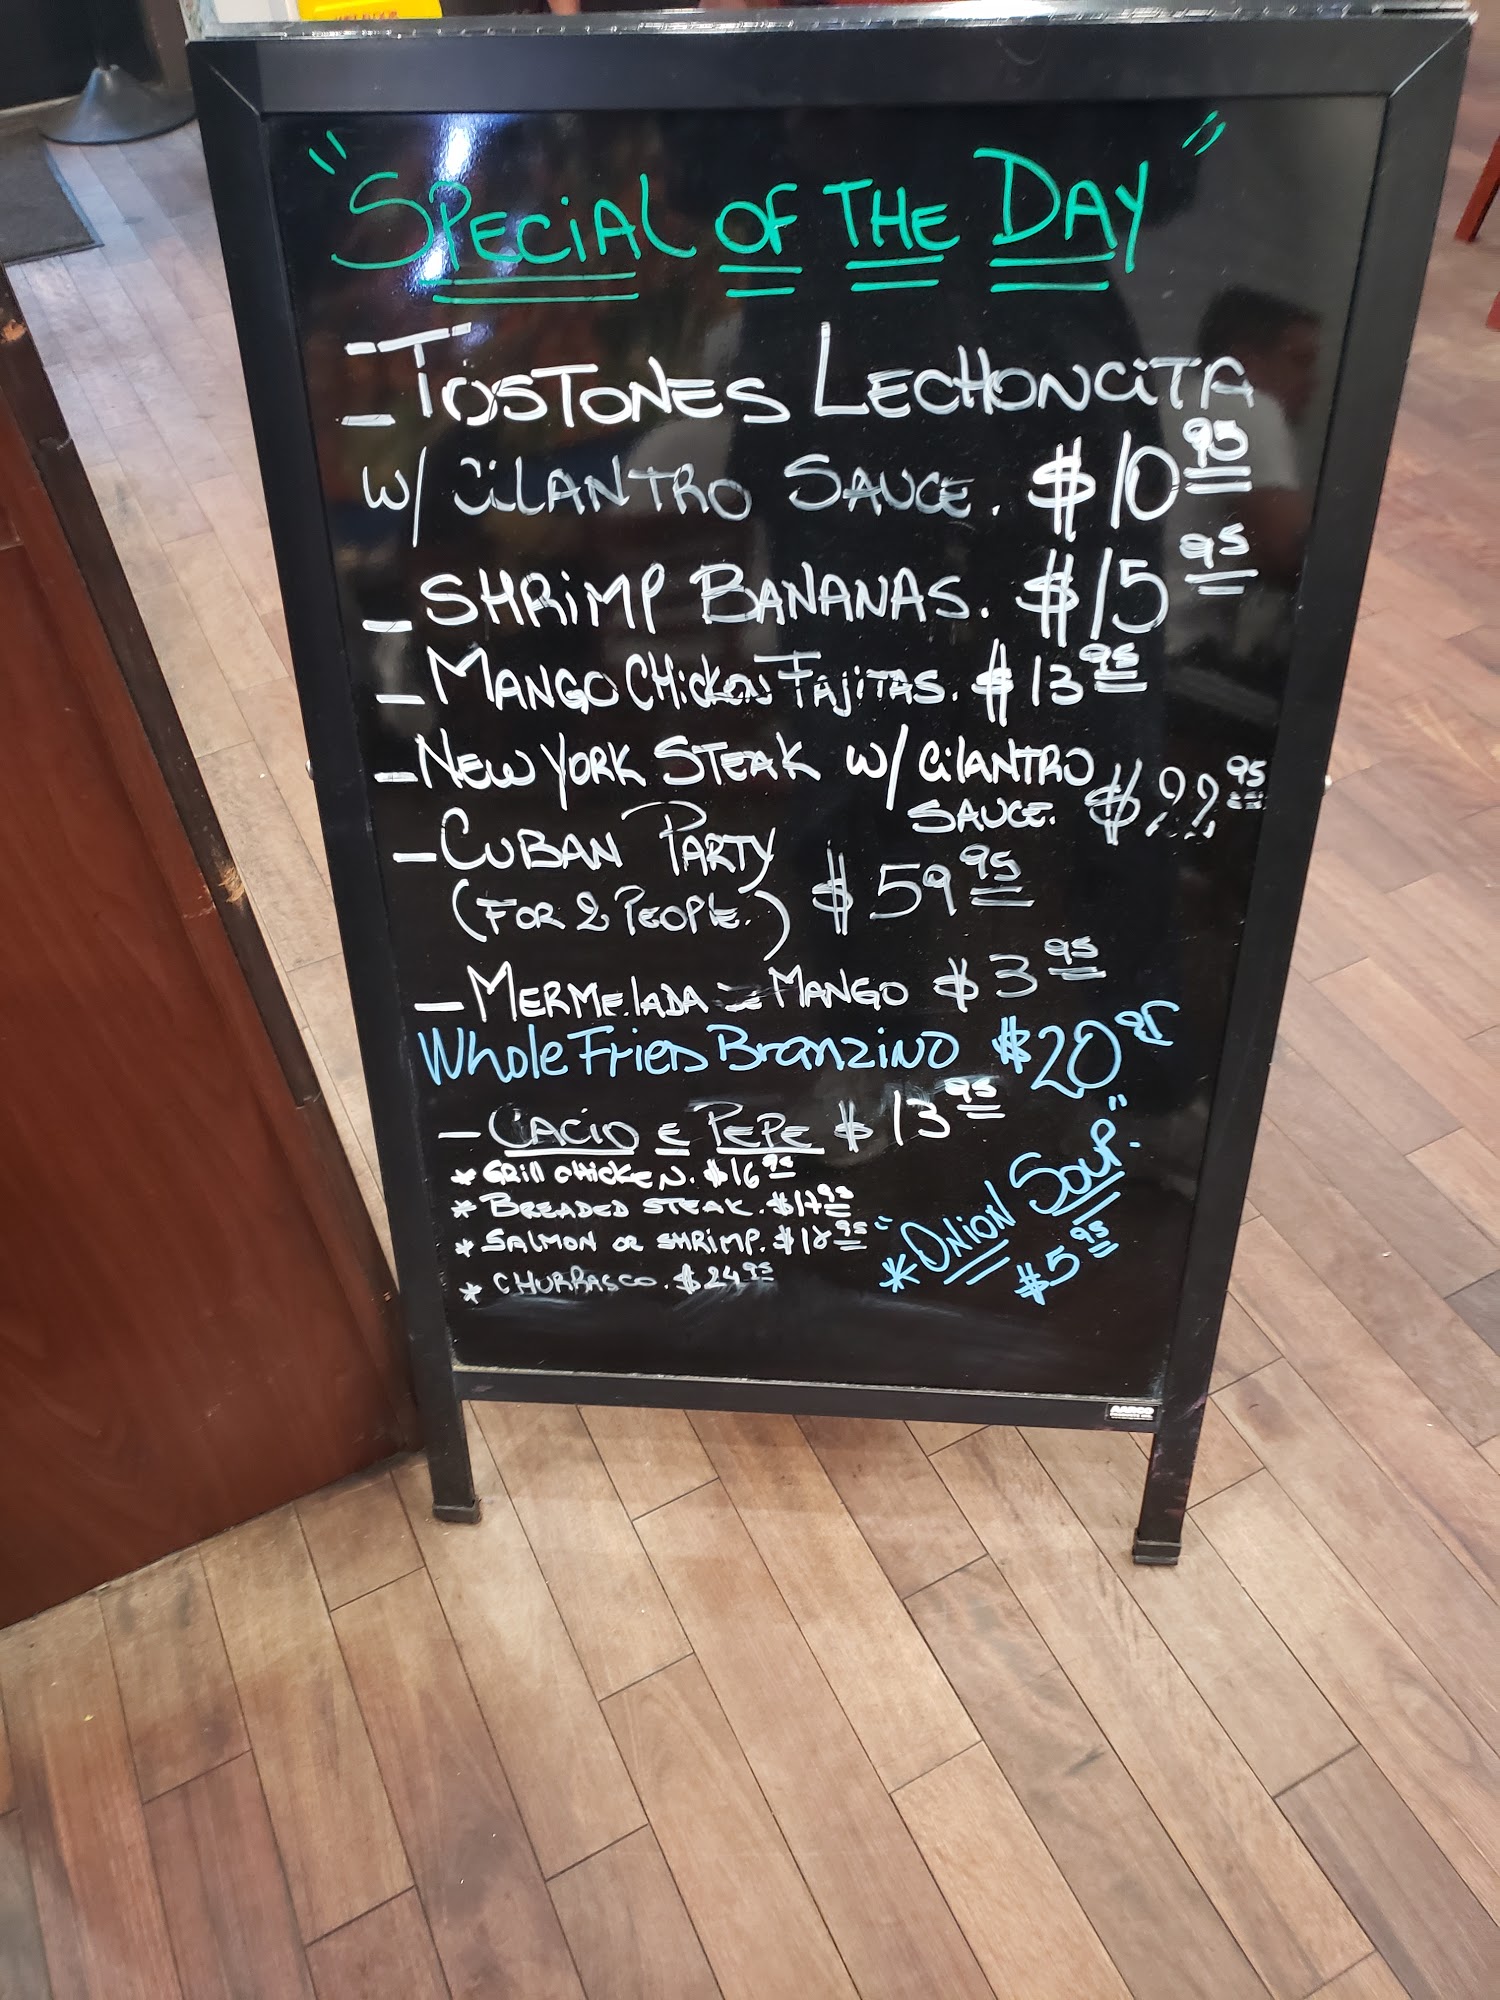 "Special of the Day"
- Tostones Lechoncita
w/ Cilantro Sauce. $10.95
- Shrimp Bananas. $15.95
- Mango Chicken Fajitas. $13.95
- New York Steak w/ Cilantro
Sauce.
- Cuban Party
(For 2 People.) $59.95
- Mermelada Mango $3.95
Whole Fried Branzino $20.95
- Cacio e Pepe $13.95
* Grill Chicken. $16.95
* Breaded Steak. $17.95
* Salmon or Shrimp. $18.95
* Churrasco. $24.95
* "Onion Soup."
$5.95